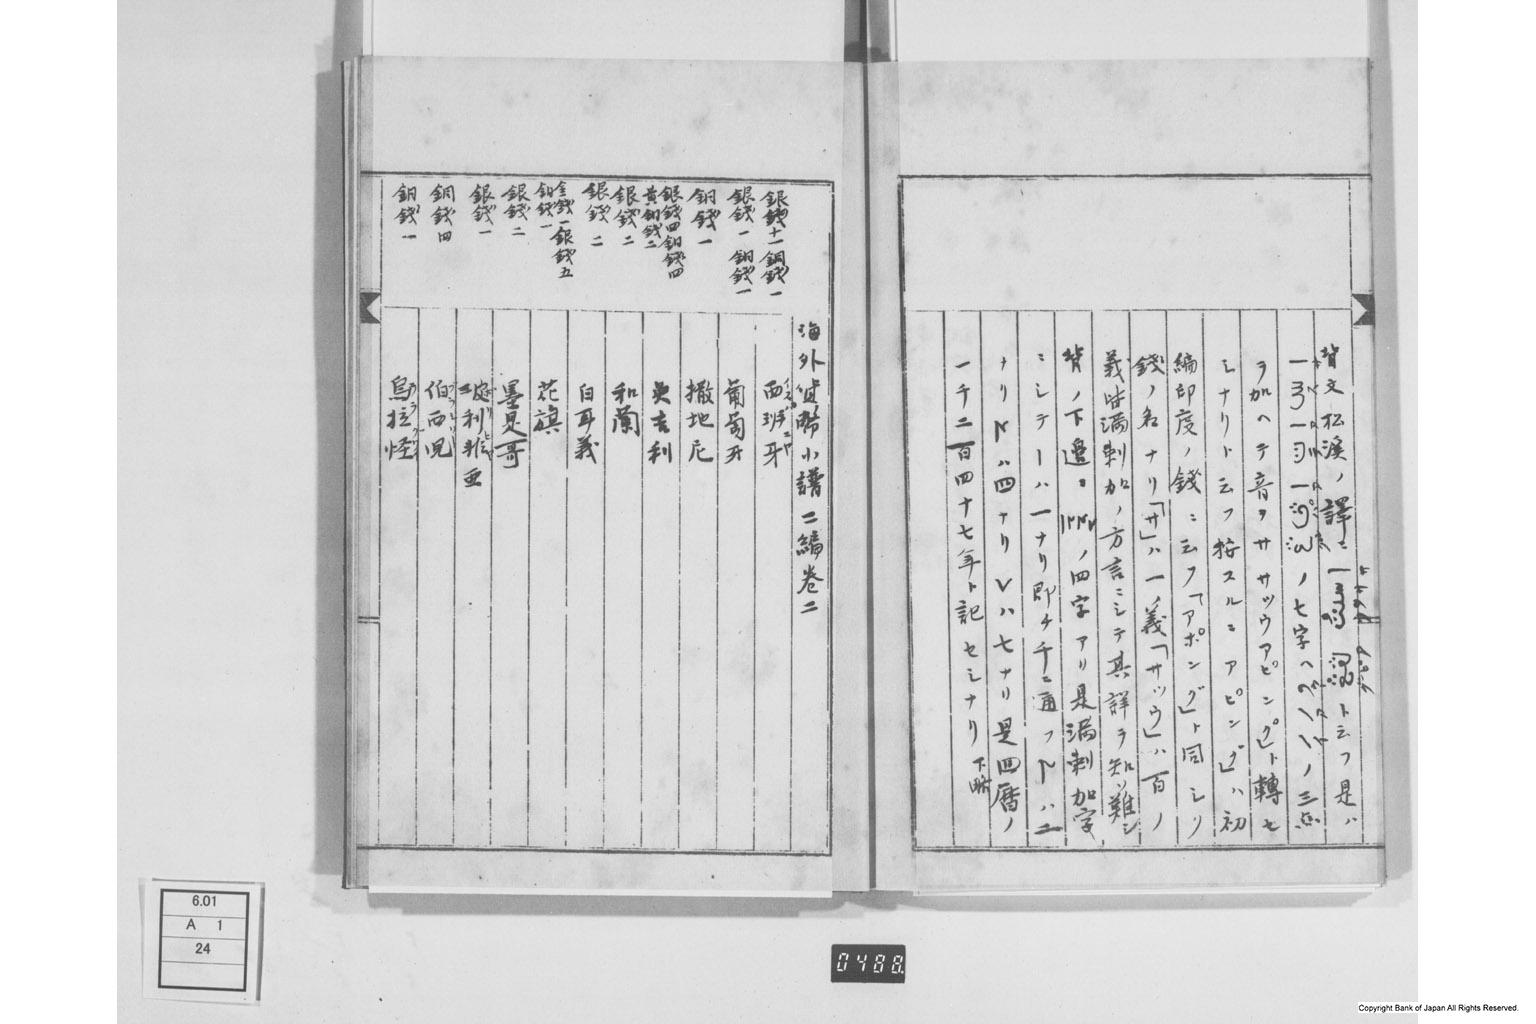 背文松溪ノ譯ニ ト云フ是ハ
ノ七字ヘ ノ三点
ヲ加ヘテ音ヲサ サツウアピングト轉セ
シナリト云フ按スルニアピング」ハ初
編印度ノ錢ニ云フ「アポング」ト同シリ
錢ノ名ナリ「サ」ハ一ノ義「サツウ」ハ百ノ
義皆満剌加ノ方言ニシテ其詳ヲ知リ難シ
背ノ下邊ニ ノ四字アリ是満剌加字
ニシテ ハ一ナリ即チ千ニ通フ ハ二
ナリ ハ四ナリ Vハ七ナリ是四暦ノ
一千二百四十七年ト記セシナリ 下略
海外貨幣小譜二編巻二
銀錢十一銅錢一
西班牙
銀錢一 銅錢一
葡萄牙
銅錢一
撒地尼
銀錢四銅錢四
黄銅錢二
英吉利
銀錢二
和蘭
銀錢二
白耳義
金錢一銀錢五
銅錢一
花旗
銀錢二
墨是哥
銀錢一
玻利非亜
銅錢四
伯西児
銅錢一
烏拉怪
6.01
A 1
24
0488
Copyright Bank of Japan All Rights Reserved.